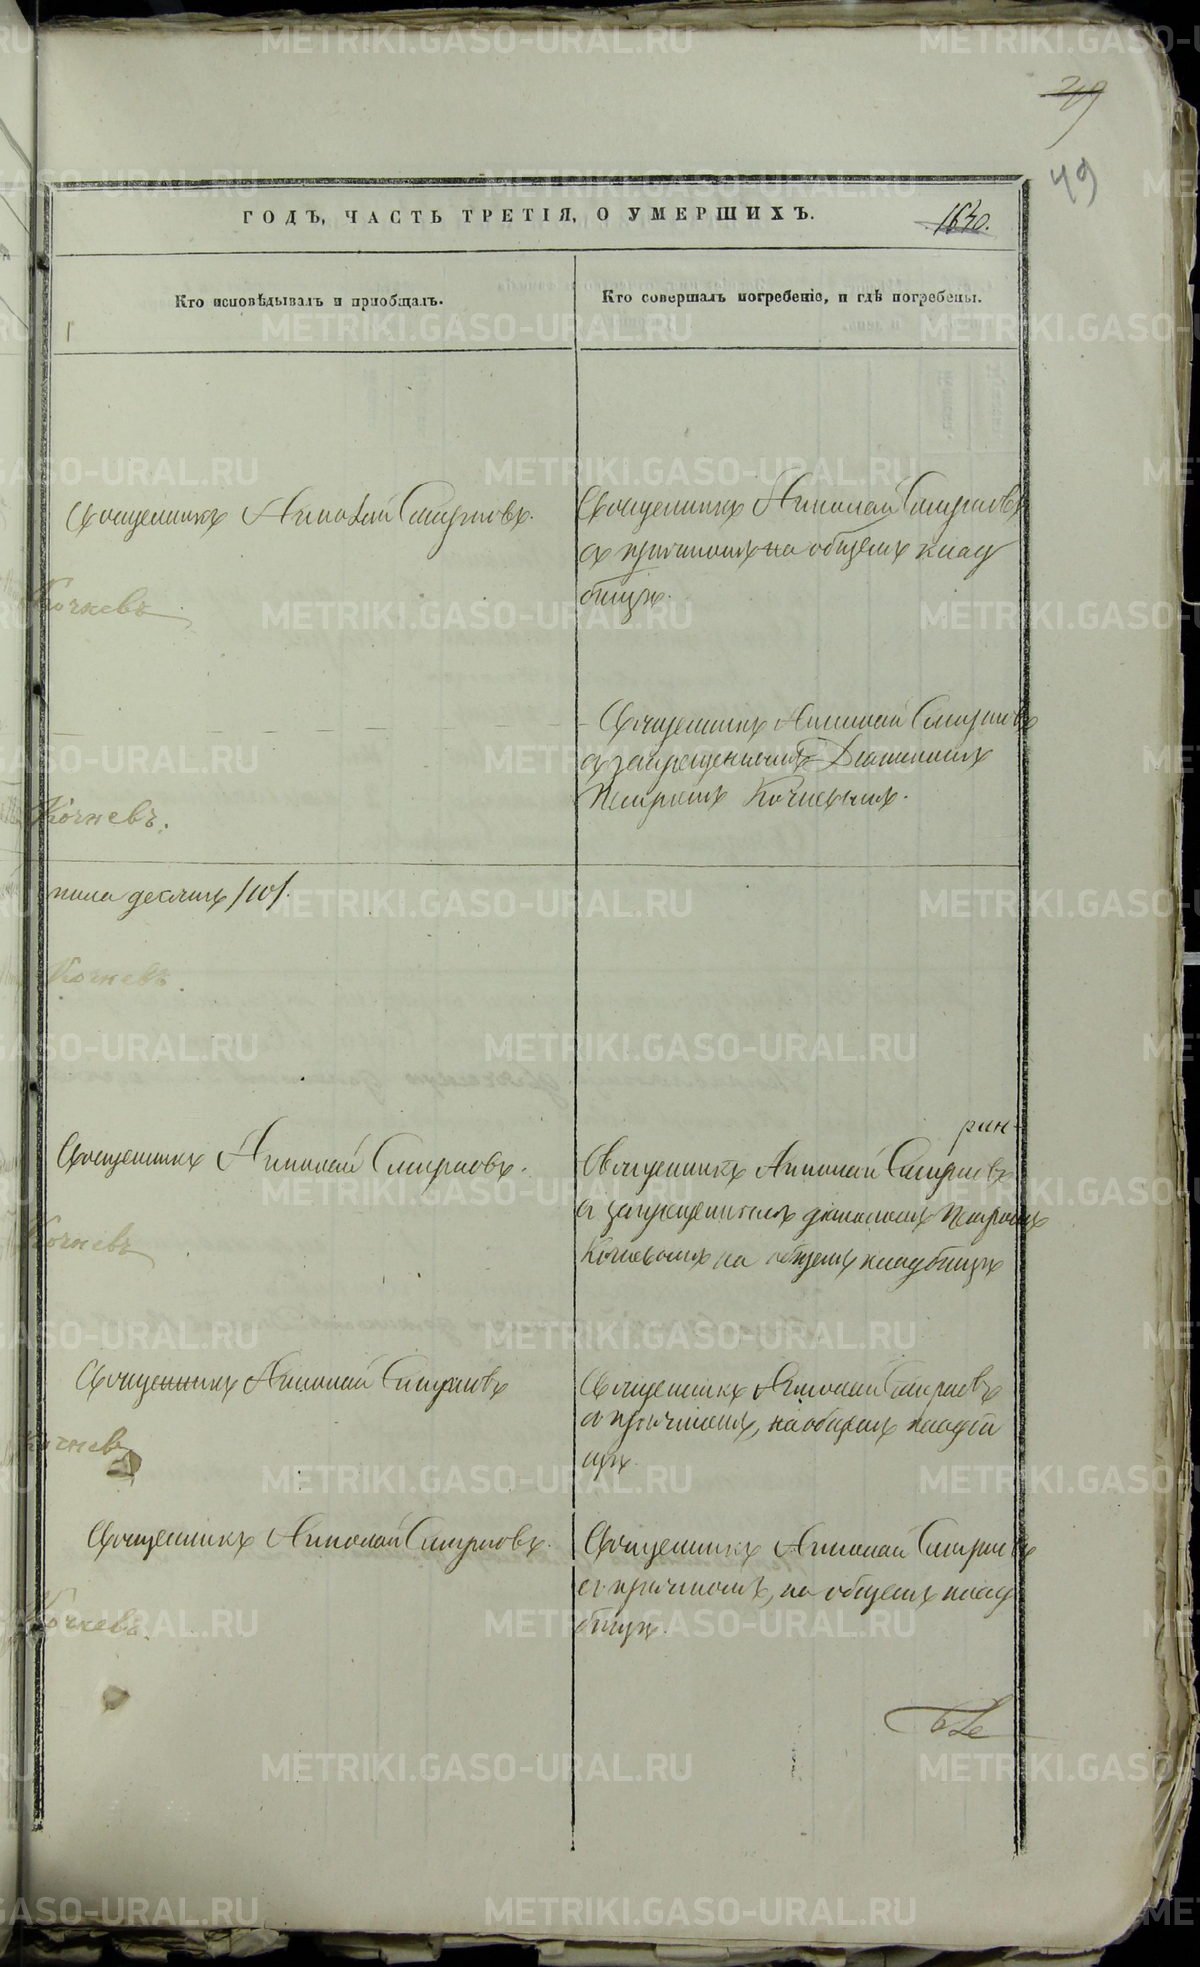 49
49
ГОДЪ, ЧАСТЬ ТРЕТІЯ, О УМЕРШИХЪ.
1630.
Кто исповѣдывалъ и пріобщалъ.
Кто совершалъ погребеніе, и гдѣ погребены.
Священникъ Николай Смирновъ.
Священникъ Николай Смирновъ
съ причтомъ на общемъ клад
бищѣ.
Кочневъ
Священникъ Николай Смирновъ
съ запрещеннымъ Діакономъ
Кочневымъ.
Кочневъ.
десять /10/.
Кочневъ.
Священникъ Николай Смирновъ.
Священникъ Николай Смирновъ
съ запрещеннымъ діакономъ
Кочневымъ на общемъ кладбищѣ
Кочневъ
Священникъ Николай Смирновъ
Священникъ Николай Смирновъ
съ причтомъ, на общемъ кладби
щѣ.
Кочневъ
Священникъ Николай Смирновъ.
Священникъ Николай Смирновъ
съ причтомъ, на общемъ клад
бищѣ.
Кочневъ.
METRIKI.GASO-URAL.RU